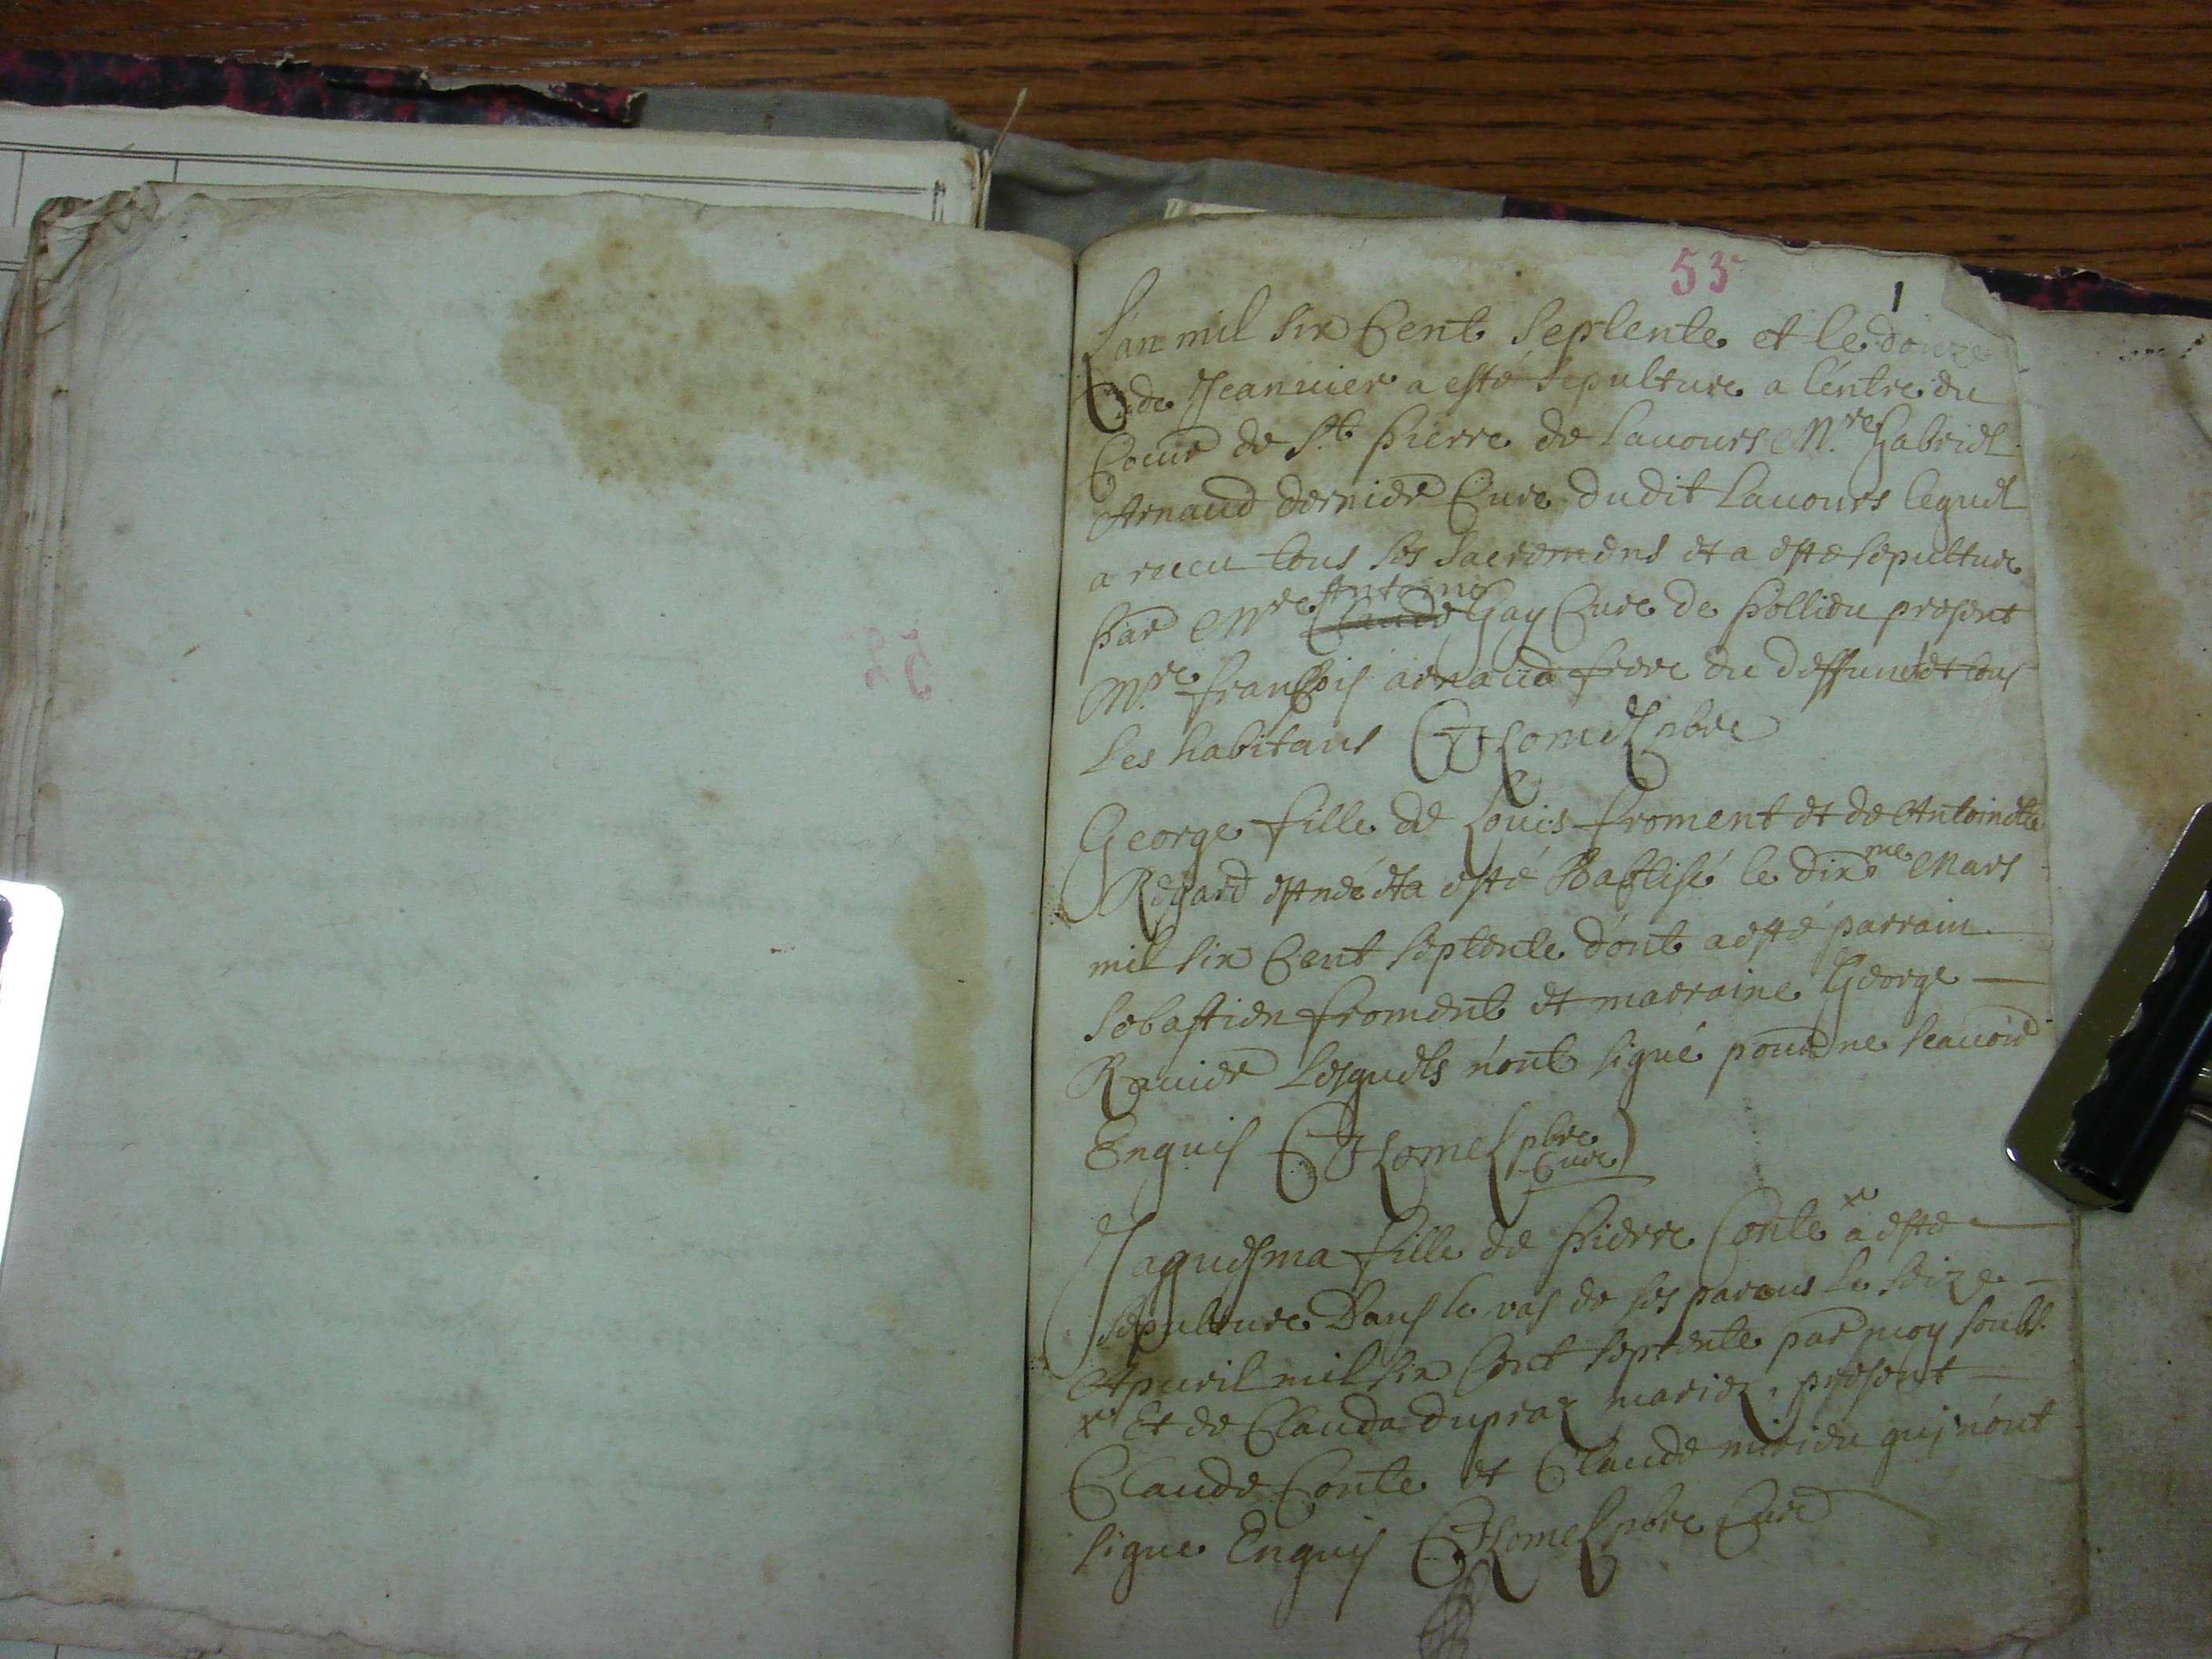 53
1
L'an mil six Cent Septente et le douze
de Jeanuier a esté sepulture a l'éntre du
Coeur de St. Pierre de Lauours Mre Gabriel
Arnaud dernier Cure dudit Lauours lequel
a receu tous ses Sacremens et a este sepulture
Par Mre Claude Antoine Gay Cure de Pollieu present
Mre François arnaud frere du deffunct et tous
Les habitans pbre
George fille de Louis froment et de Antoinette
Regard est née et a esté Baptisé le dixme Mars
mil six Cent septente d'ont a esté parrain
Sebastien froment et marraine George
Rauier Lesquels n'ont signé pour ne scauoir
Enquis pbre
Cure
Jaquesma fille de Pierre Conte x a esté
sepulture Dans le vas de ses parens le seize
Apuril mil six Cent septente par moy soubs.
x Et de Clauda dupraz mariez, present
Claude Conte et Claude qui n'ont
signe Enquis pbre Cure